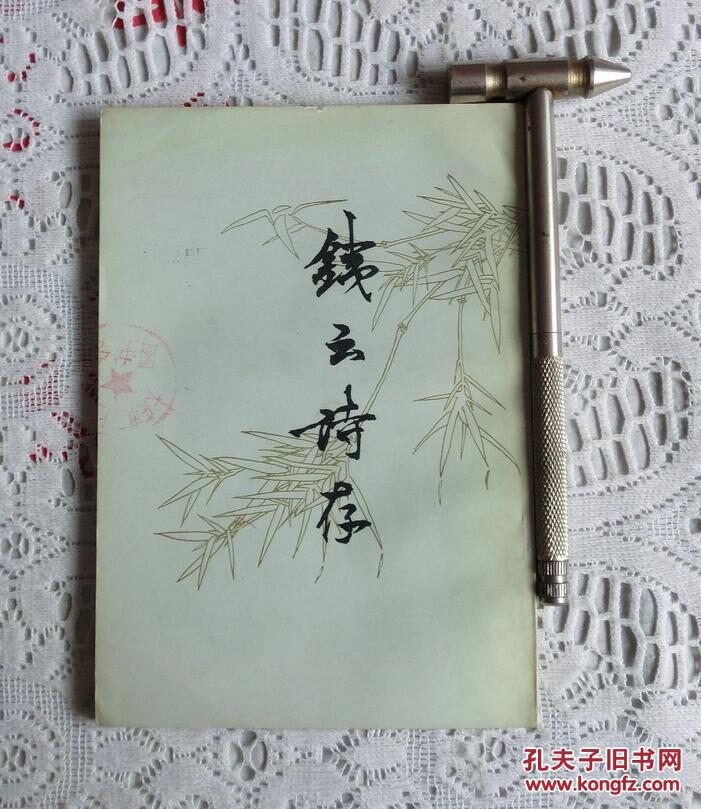 銕云詩存
孔夫子旧书网
www.kongfz.com